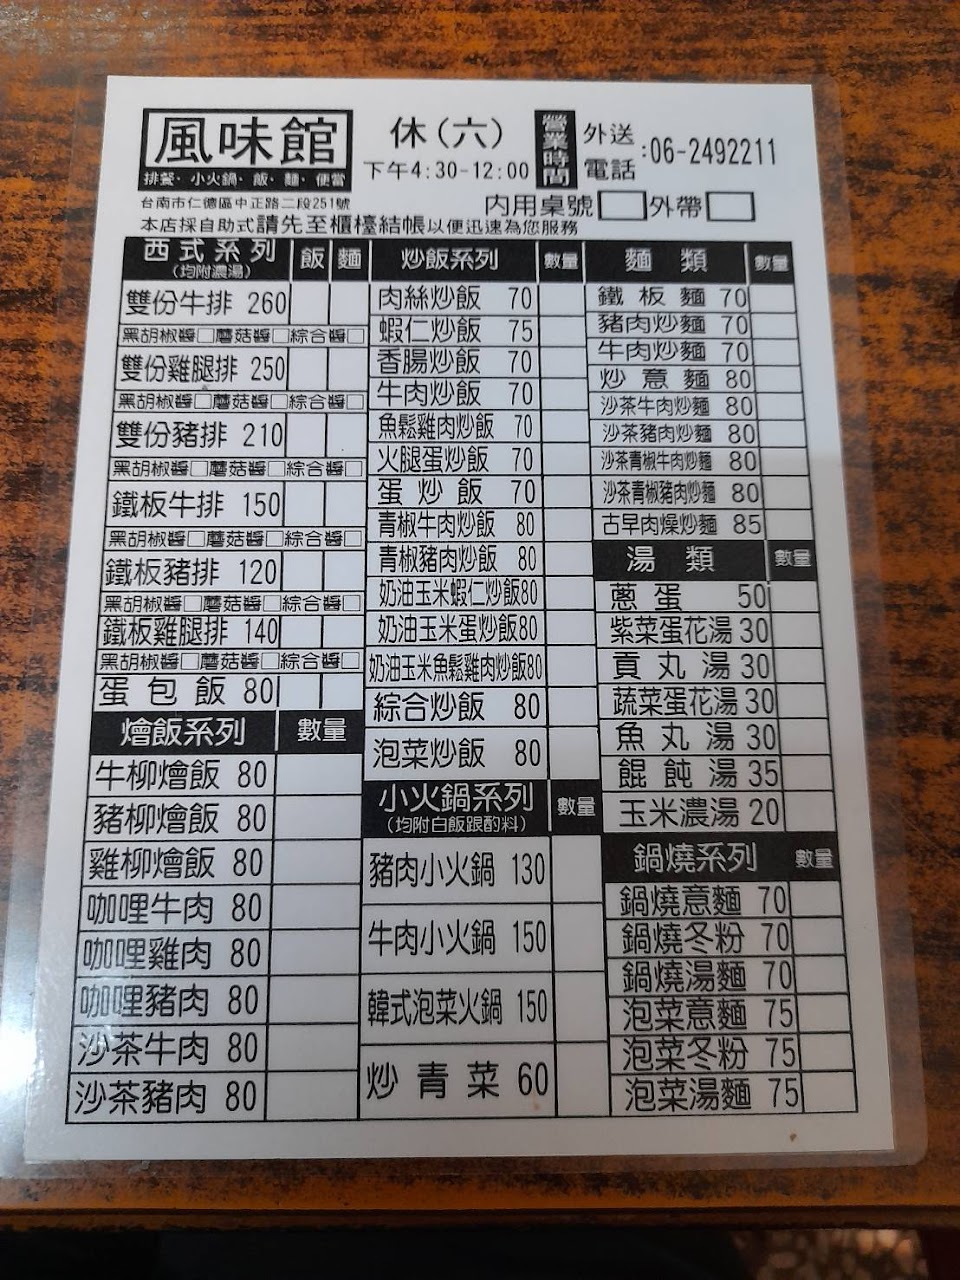 風味館
排餐·小火鍋·飯·麵·便當
台南市仁德區中正路二段251號
休(六)
下午4:30-12:00
營業時間
外送電話:06-2492211
內用桌號□外帶□
本店採自助式請先至櫃檯結帳以便迅速為您服務
西式系列 飯 麵
(均附濃湯)
雙份牛排 260
黑胡椒醬□蘑菇醬□綜合醬□
雙份雞腿排 250
黑胡椒醬□蘑菇醬□綜合醬□
雙份豬排 210
黑胡椒醬□蘑菇醬□綜合醬□
鐵板牛排 150
黑胡椒醬□蘑菇醬□綜合醬□
鐵板豬排 120
黑胡椒醬□蘑菇醬□綜合醬□
鐵板雞腿排 140
黑胡椒醬□蘑菇醬□綜合醬□
蛋包飯 80
燴飯系列 數量
牛柳燴飯 80
豬柳燴飯 80
雞柳燴飯 80
咖哩牛肉 80
咖哩雞肉 80
咖哩豬肉 80
沙茶牛肉 80
沙茶豬肉 80
炒飯系列 數量
肉絲炒飯 70
蝦仁炒飯 75
香腸炒飯 70
牛肉炒飯 70
魚鬆雞肉炒飯 70
火腿蛋炒飯 70
蛋炒飯 70
青椒牛肉炒飯 80
青椒豬肉炒飯 80
奶油玉米蝦仁炒飯80
奶油玉米蛋炒飯80
奶油玉米魚鬆雞肉炒飯80
綜合炒飯 80
泡菜炒飯 80
小火鍋系列 數量
(均附白飯跟酌料)
豬肉小火鍋 130
牛肉小火鍋 150
韓式泡菜火鍋 150
炒青菜 60
麵類 數量
鐵板麵 70
豬肉炒麵 70
牛肉炒麵 70
炒意麵 80
沙茶牛肉炒麵 80
沙茶豬肉炒麵 80
沙茶青椒牛肉炒麵 80
沙茶青椒豬肉炒麵 80
古早肉燥炒麵 85
湯類 數量
蔥蛋 50
紫菜蛋花湯 30
貢丸湯 30
蔬菜蛋花湯 30
魚丸湯 30
餛飩湯 35
玉米濃湯 20
鍋燒系列 數量
鍋燒意麵 70
鍋燒冬粉 70
鍋燒湯麵 70
泡菜意麵 75
泡菜冬粉 75
泡菜湯麵 75